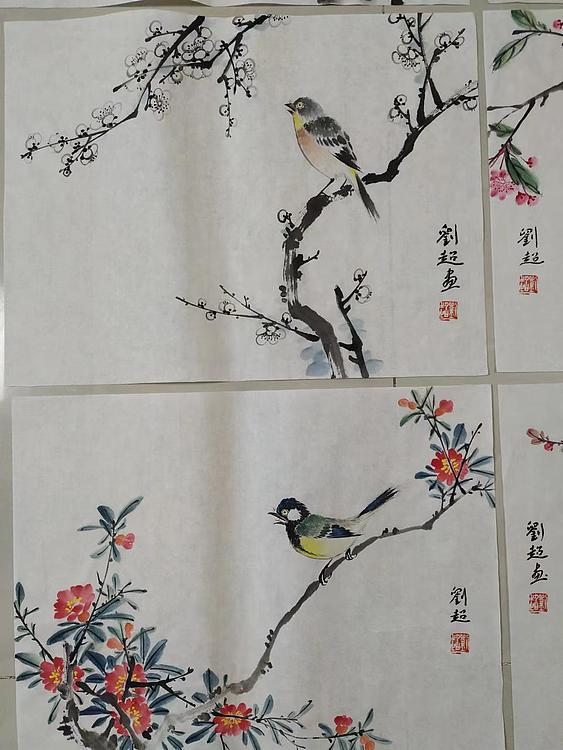 劉超画
劉超
劉超
劉超画